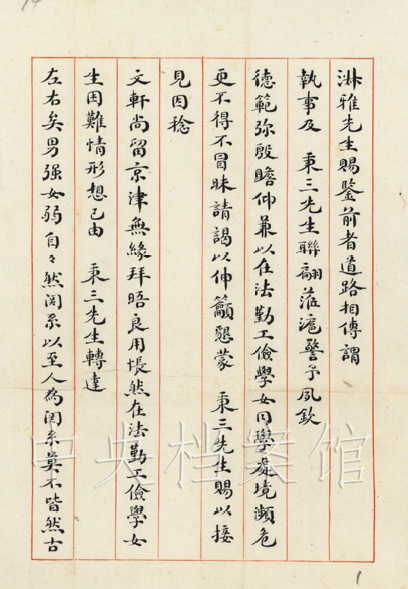 淋雅先生賜鑒前者道路相傳謂
執事及 秉三先生聯翩蒞滬警予夙欽
德範弥殷瞻仰兼以在法勤工儉學女同學處境瀕危
更不得不冒昧請謁以伸籲懇蒙 秉三先生賜以接
見因稔
文軒尚留京津無緣拜晤良用悵然在法勤工儉學女
生困難情形想已由 秉三先生轉達
左右矣男强女弱自々然関系以至人為関系莫不皆然古
中央档案馆
1